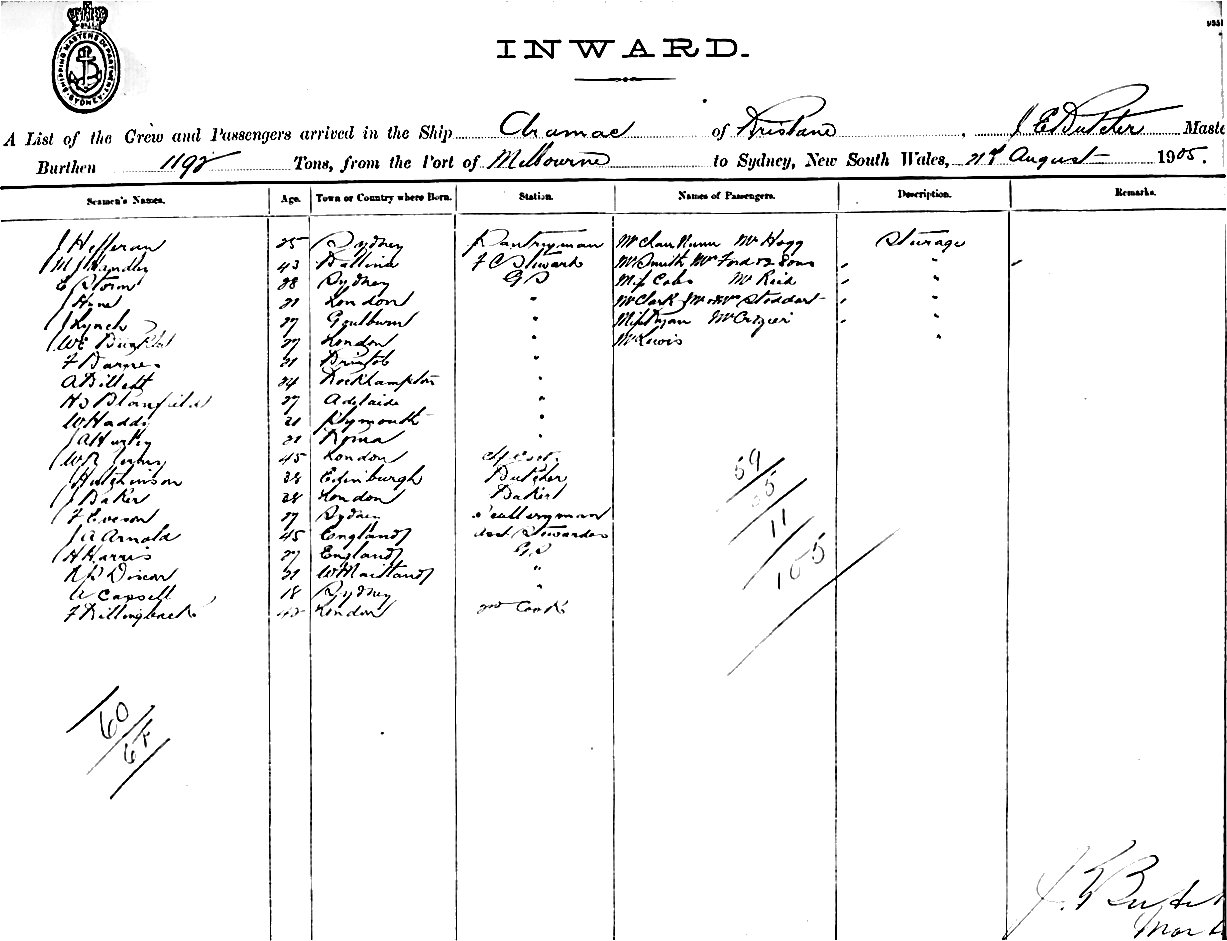 SHIPPING MASTERS DEPARTMENT SYDNEY
INWARD.
A List of the Crew and Passengers arrived in the Ship Aramac of Brisbane, J E Butcher Maste
Burthen 1192 Tons, from the Port of Melbourne to Sydney, New South Wales, 21st August 1905.
Seamen's Names. Age. Town or Country where Born. Station. Names of Passengers. Description. Remarks.
J Hefferan 25 Sydney Pantryman Mr Hogg Steerage
43 Ballina F C Steward Mr Smith Mr Ford & 2 Sons "
E Storm 28 Sydney G S Miss Mr Reid "
J 21 London " Mr Clark Mr & Mrs Stoddart "
J Lynch 27 Goulburn " Miss Ryan Mr Crozier "
W E 27 London " Mr Lewis "
F Barnes 21 Bristol "
A Billett 24 Rockhampton "
H S Blomfield 27 Adelaide "
W Haddy 21 Plymouth "
J A Hurley 21 Roma "
W R 45 London Ch Cook
Hutchinson 28 Edinburgh Butcher
J Baker 28 London Baker
F Eveson 27 Sydney Sculleryman
J A Arnold 45 England Asst Stewardess
H Harris 27 England G S
21 W Maitland "
Capsell 18 Sydney "
F Killingback London Cook
59
11
60
J. E Butch
Mast